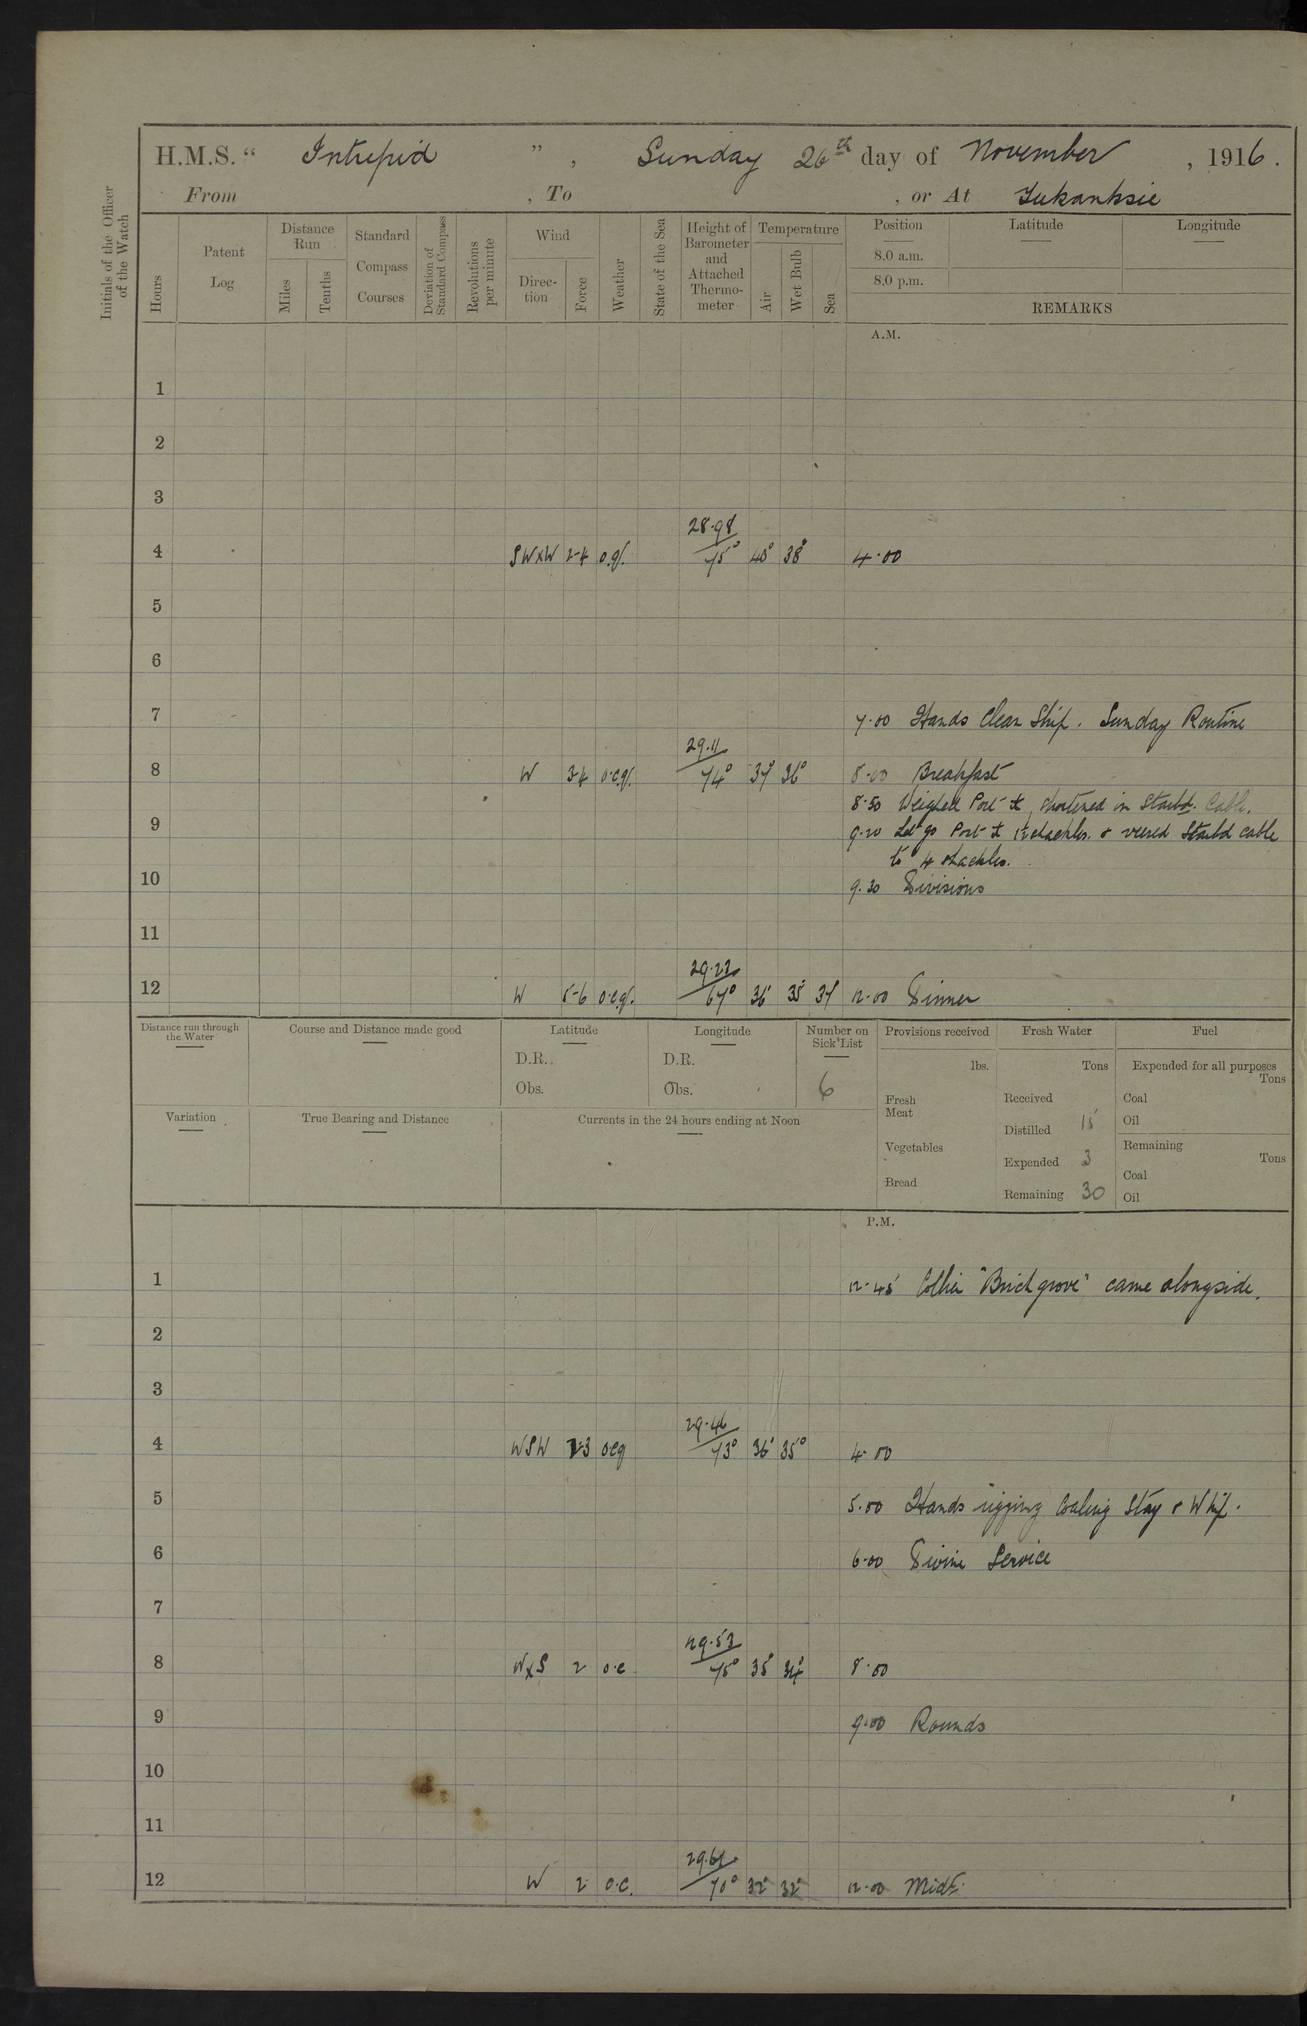 H.M.S. "Intrepid", Sunday 26th day of November, 1916.
From , To , or At Yukanksie
Initials of the Officer of the Watch
Hours
Patent Log
Distance Run
Miles
Tenths
Standard Compass Courses
Deviation of Standard Compass
Revolutions per minute
Wind
Direction
Force
Weather
State of the Sea
Height of Barometer and Attached Thermometer
Temperature
Air
Wet Bulb
Sea
Position Latitude Longitude
8.0 a.m.
8.0 p.m.
REMARKS
A.M.
1
2
3
28.98
4 SWxW 2-4 o.q. 75° 40° 38° 4.00
5
6
7 7.00 Hands Clean Ship. Sunday Routine
29.11
8 W 3-4 o.c.q. 74° 37° 36° 8.00 Breakfast
8.50 Weighed Port ⚓, shortened in Starbd. Cable.
9 9.20 Let go Port ⚓ 1½ shackles. & veered Starbd cable
to 4 shackles.
10 9.30 Divisions
11
29.22
12 W 5-6 o.c.q. 67° 36° 35° 37° 12.00 Dinner
Distance run through the Water
Course and Distance made good
Latitude
D.R.
Obs.
Longitude
D.R.
Obs.
Number on Sick List
6
Variation
True Bearing and Distance
Currents in the 24 hours ending at Noon
Provisions received
lbs.
Fresh Meat
Vegetables
Bread
Fresh Water
Tons
Received
Distilled 15
Expended 3
Remaining 30
Fuel
Expended for all purposes
Tons
Coal
Oil
Remaining
Tons
Coal
Oil
P.M.
1 12.45 Collier "Birchgrove" came alongside.
2
3
29.46
4 WSW 2-3 ocq 73° 36° 35° 4.00
5 5.00 Hands rigging Coaling Stay & Whip.
6 6.00 Divine Service
7
29.53
8 WxS 2 o.c 75° 35° 34° 8.00
9 9.00 Rounds
10
11
29.61
12 W 2 o.c. 70° 32° 32° 12.00 Midt.